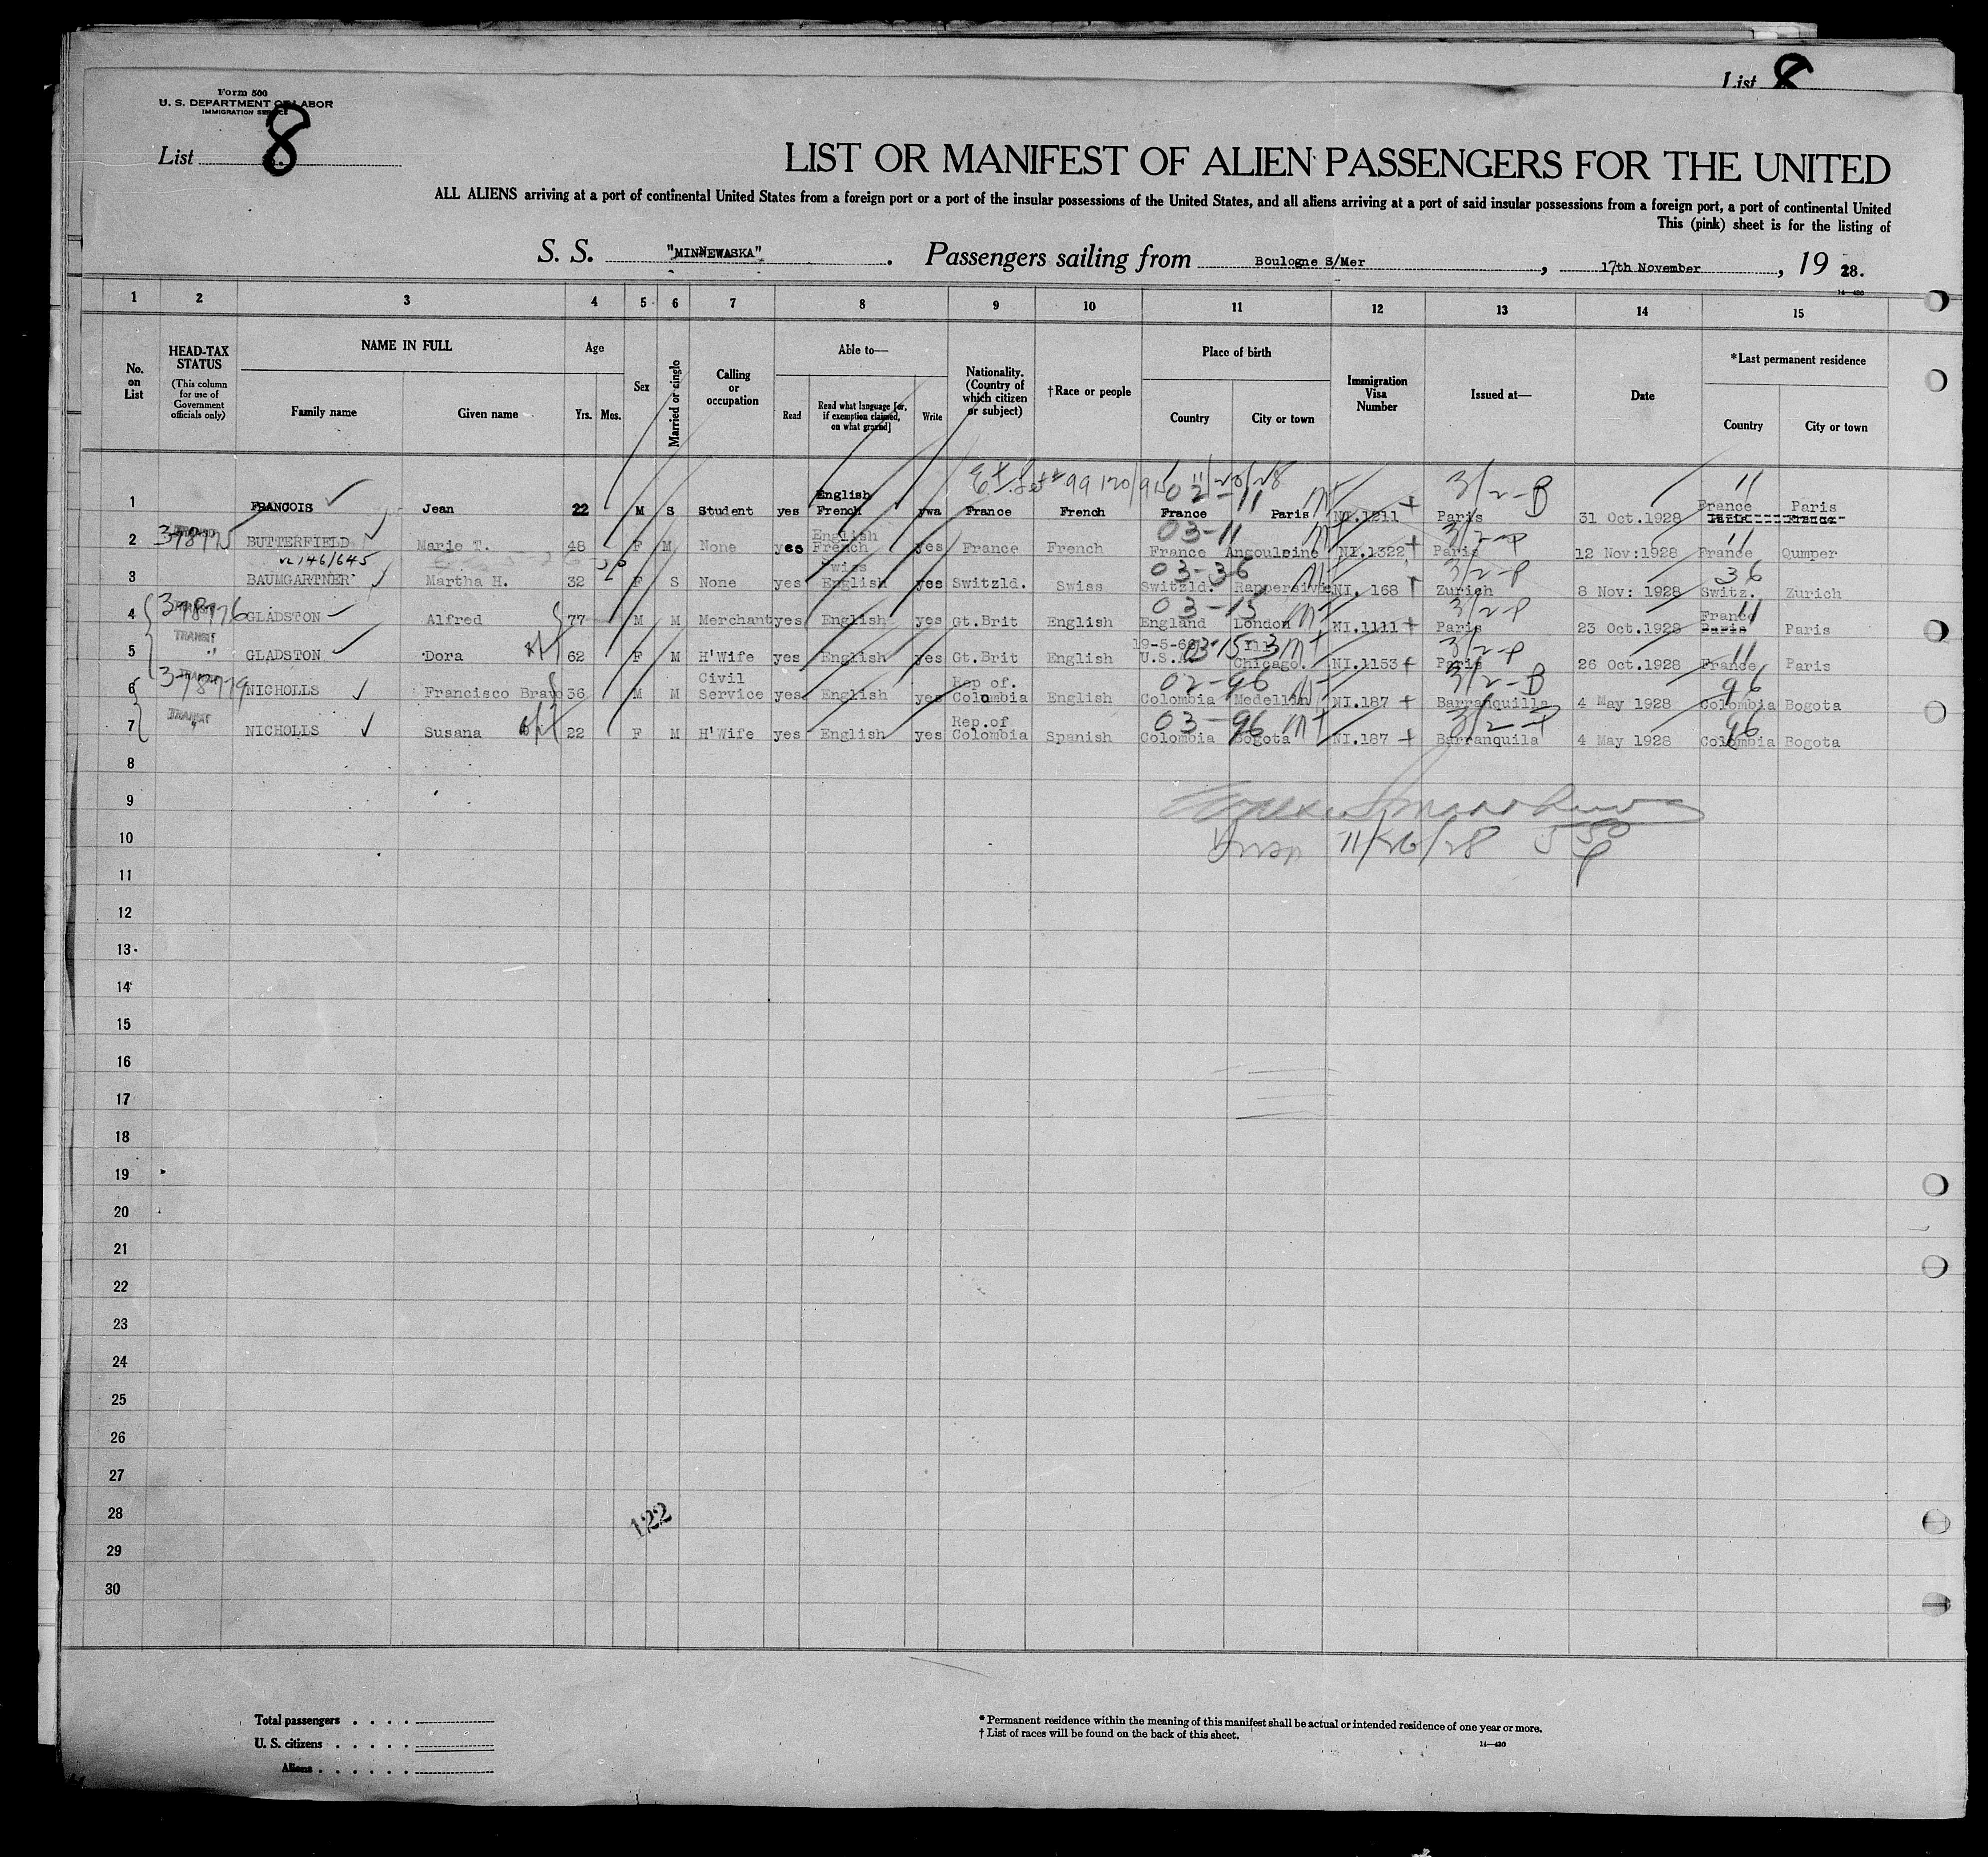 List 8
Form 500
U. S. DEPARTMENT OF LABOR
IMMIGRATION SERVICE
List 8
LIST OR MANIFEST OF ALIEN PASSENGERS FOR THE UNITED
ALL ALIENS arriving at a port of continental United States from a foreign port or a port of the insular possessions of the United States, and all aliens arriving at a port of said insular possessions from a foreign port, a port of continental United
This (pink) sheet is for the listing of
S. S. "MINNEWASKA". Passengers sailing from Boulogne S/Mer, 17th November, 19 28.
14—430
1 2 3 4 5 6 7 8 9 10 11 12 13 14 15
No. on List
HEAD-TAX STATUS (This column for use of Government officials only)
NAME IN FULL
Family name Given name
Age
Yrs. Mos.
Sex
Married or single
Calling or occupation
Able to—
Read
Read what language [or, if exemption claimed, on what ground]
Write
Nationality. (Country of which citizen or subject)
†Race or people
Place of birth
Country City or town
Immigration Visa Number
Issued at—
Date
*Last permanent residence
Country City or town
11/20/28
02-11 3/2-B 11
1 FRANCOIS Jean 22 M S Student yes English French ywa France French France Paris NI.1211 Paris 31 Oct.1928 France Paris
03-11 3/2-P 11
2 TRANSIT BUTTERFIELD Marie T. 48 F M None yes English French yes France French France NI.1322 Paris 12 Nov:1928 France Qumper
146/645
03-36 3/2-P 36
3 BAUMGARTNER Martha H. 32 F S None yes Swiss English yes Switzld. Swiss Switzld. NI. 168 Zurich 8 Nov: 1928 Switz. Zurich
03-15 3/2-P 11
4 TRANSIT GLADSTON Alfred 77 M M Merchant yes English yes Gt.Brit English England London NI.1111 Paris 23 Oct.1928 France Paris Paris
TRANSIT
03-15 3/2-P 11
5 " GLADSTON Dora 62 F M H'Wife yes English yes Gt.Brit English U.S. Ill Chicago. NI.1153 Paris 26 Oct.1928 France Paris
02-96 3/2-B 96
6 TRANSIT NICHOLLS Francisco Bravo 36 M M Civil Service yes English yes Rep of. Colombia English Colombia Medellin NI.187 Barranquilla 4 May 1928 Colombia Bogota
03-96 3/2-P 96
7 TRANSIT NICHOLLS Susana 22 F M H'Wife yes English yes Rep.of Colombia Spanish Colombia Bogota NI.187 Barranquila 4 May 1928 Colombia Bogota
8
9
10 11/26/28
11
12
13
14
15
16
17
18
19
20
21
22
23
24
25
26
27
28 122
29
30
Total passengers . . . .
U. S. citizens . . . . .
Aliens . . . . . .
* Permanent residence within the meaning of this manifest shall be actual or intended residence of one year or more.
† List of races will be found on the back of this sheet.
14—430